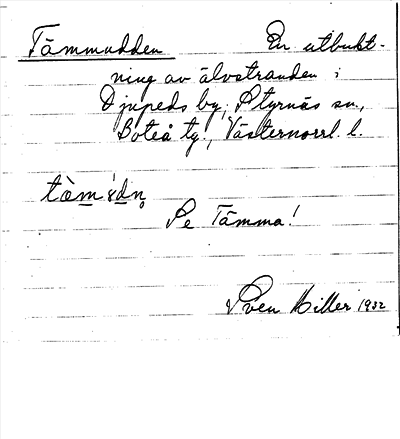 Tämmudden En utbukt-
ning av älvstranden i
Djupeds by, Styrnäs sn,
Boteå tg., Västernorrl. l.
Se Tämma!
Sven Hiller 1932